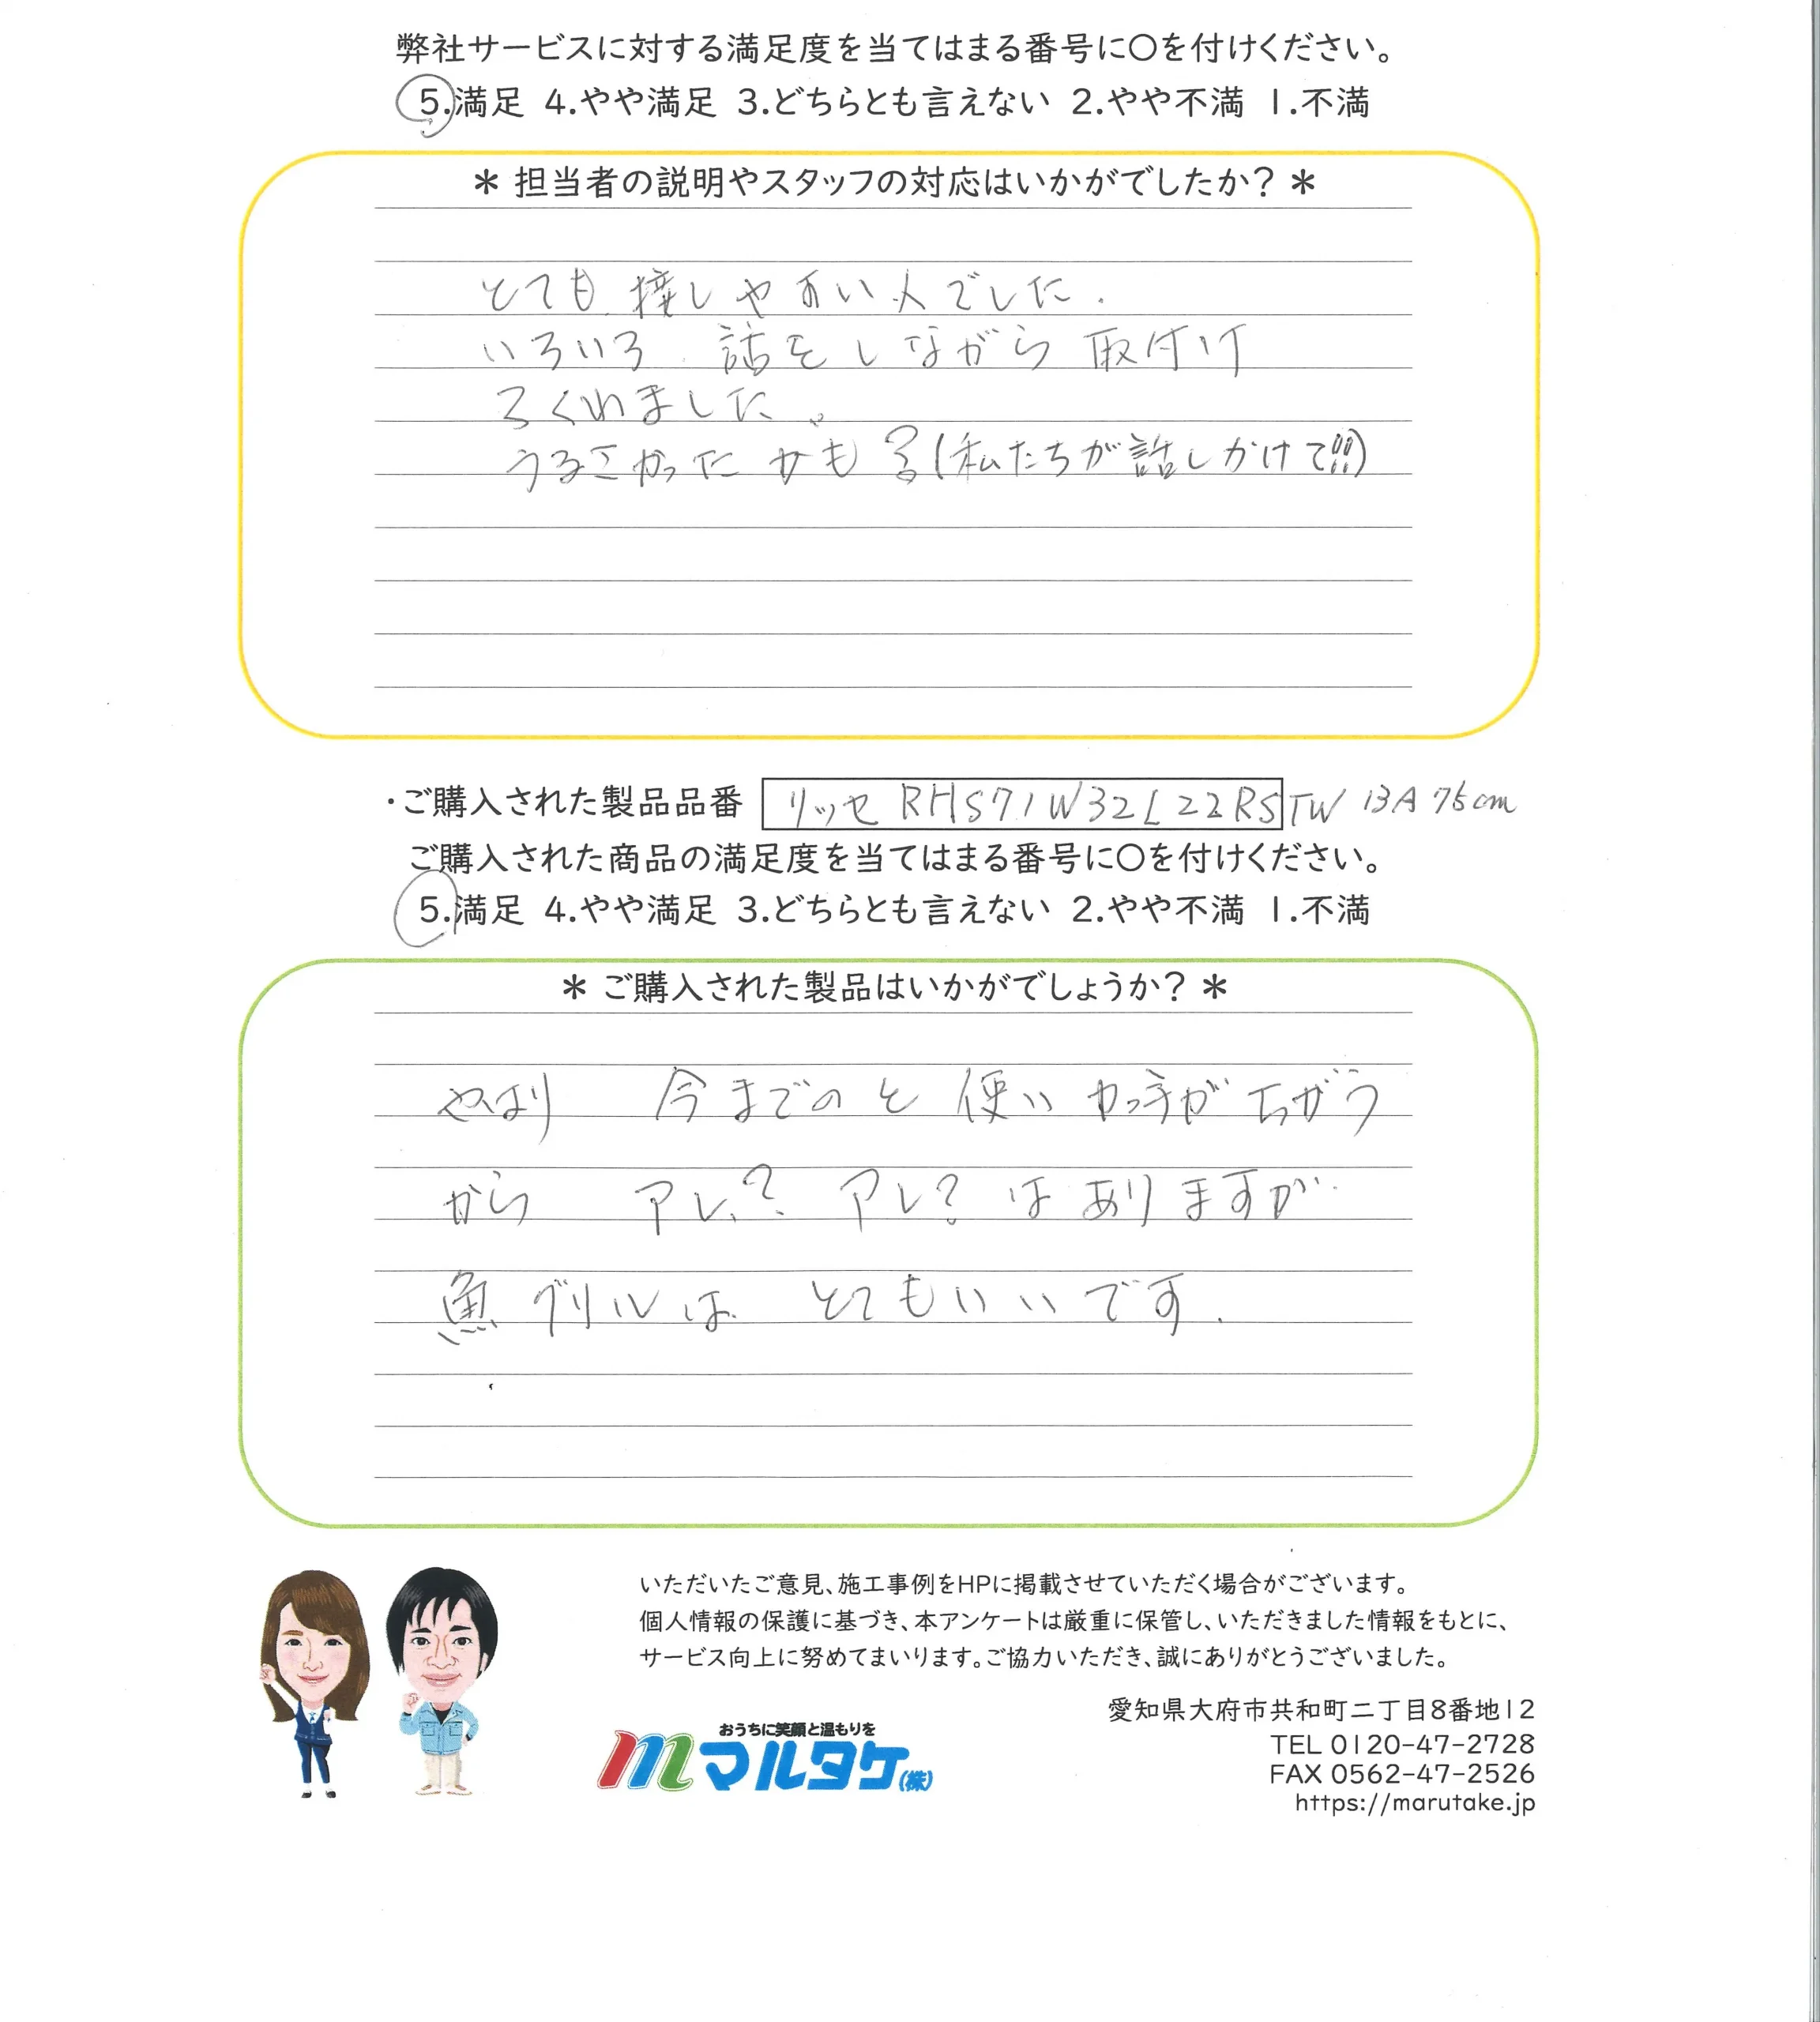 弊社サービスに対する満足度を当てはまる番号に〇を付けください。
5.満足 4.やや満足 3.どちらとも言えない 2.やや不満 1.不満
＊ 担当者の説明やスタッフの対応はいかがでしたか? ＊
とても 接しやすい人でした.
いろいろ 話をしながら 取付け
てくれました。
うるさかったかも?(私たちが話しかけて!!)
・ご購入された製品品番 リッセ RHS71W32L22RSTW 13A 75cm
ご購入された商品の満足度を当てはまる番号に〇を付けください。
5.満足 4.やや満足 3.どちらとも言えない 2.やや不満 1.不満
＊ ご購入された製品はいかがでしょうか? ＊
やはり 今までのと 使いカッ手が ちがう
から アレ? アレ? は ありますが
魚グリルは とてもいいです.
いただいたご意見、施工事例をHPに掲載させていただく場合がございます。
個人情報の保護に基づき、本アンケートは厳重に保管し、いただきました情報をもとに、
サービス向上に努めてまいります。ご協力いただき、誠にありがとうございました。
愛知県大府市共和町二丁目8番地12
おうちに笑顔と温もりを
m マルタケ(株)
TEL 0120-47-2728
FAX 0562-47-2526
https://marutake.jp